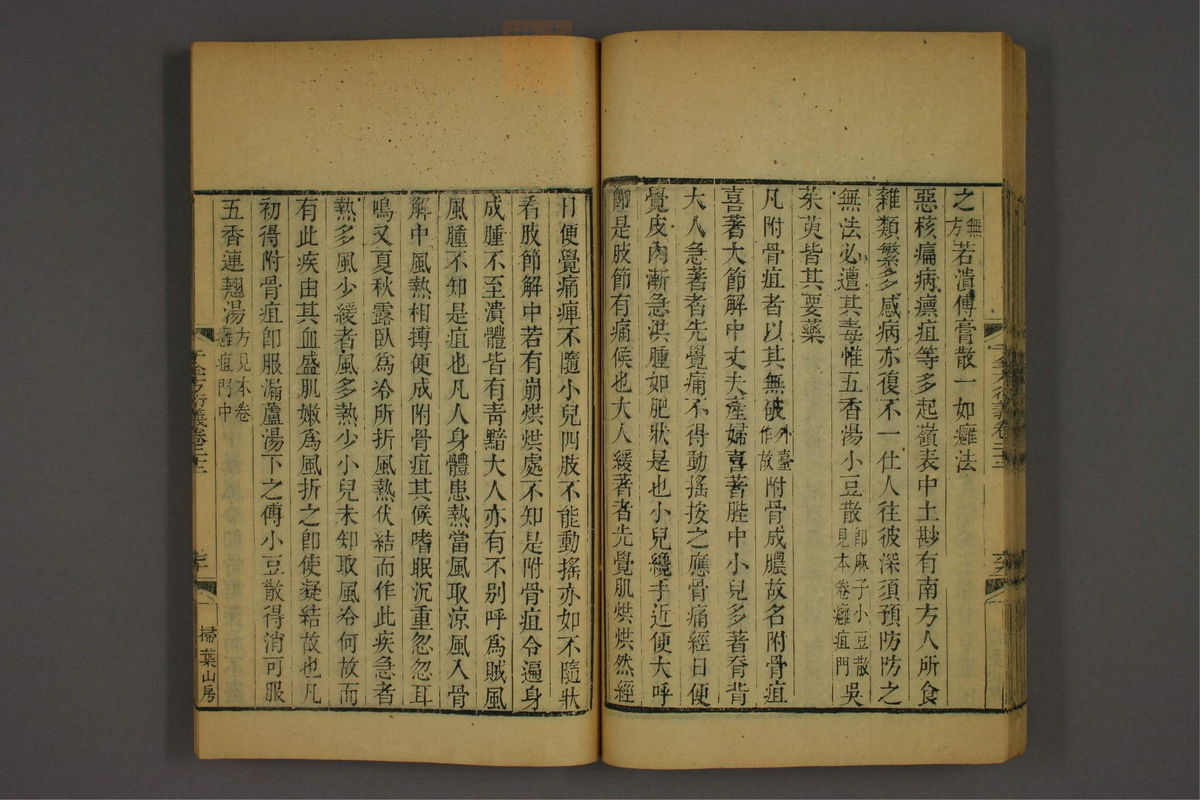 之無方若潰傅膏散一如癰法
惡核㾓病瘭疽等多起嶺表中土尠有南方人所食
雜類繁多感病亦復不一仕人往彼深須預防防之
無法必遭其毒惟五香湯小豆散卽麻子小豆散見本卷癰疽門吳
茱萸皆其要藥
凡附骨疽者以其無破外臺作故附骨成膿故名附骨疽
喜著大節解中丈夫產婦喜著䏶中小兒多著脊背
大人急著者先覺痛不得動搖按之應骨痛經日便
覺皮肉漸急洪腫如肥狀是也小兒纔手近便大呼
卽是肢節有痛候也大人緩著者先覺肌烘烘然經
日便覺痛痺不隨小兒四肢不能動搖亦如不隨狀
看肢節解中若有崩烘烘處不知是附骨疽令遍身
成腫不至潰體皆有靑黯大人亦有不别呼爲賊風
風腫不知是疽也凡人身體患熱當風取涼風入骨
解中風熱相搏便成附骨疽其候嗜眠沉重忽忽耳
鳴又夏秋露臥爲冷所折風熱伏結而作此疾急者
熱多風少緩者風多熱少小兒未知取風冷何故而
有此疾由其血盛肌嫩爲風折之卽使凝結故也凡
初得附骨疽卽服漏蘆湯下之傅小豆散得消可服
五香連翹湯方見本卷癰疽門中
掃葉山房